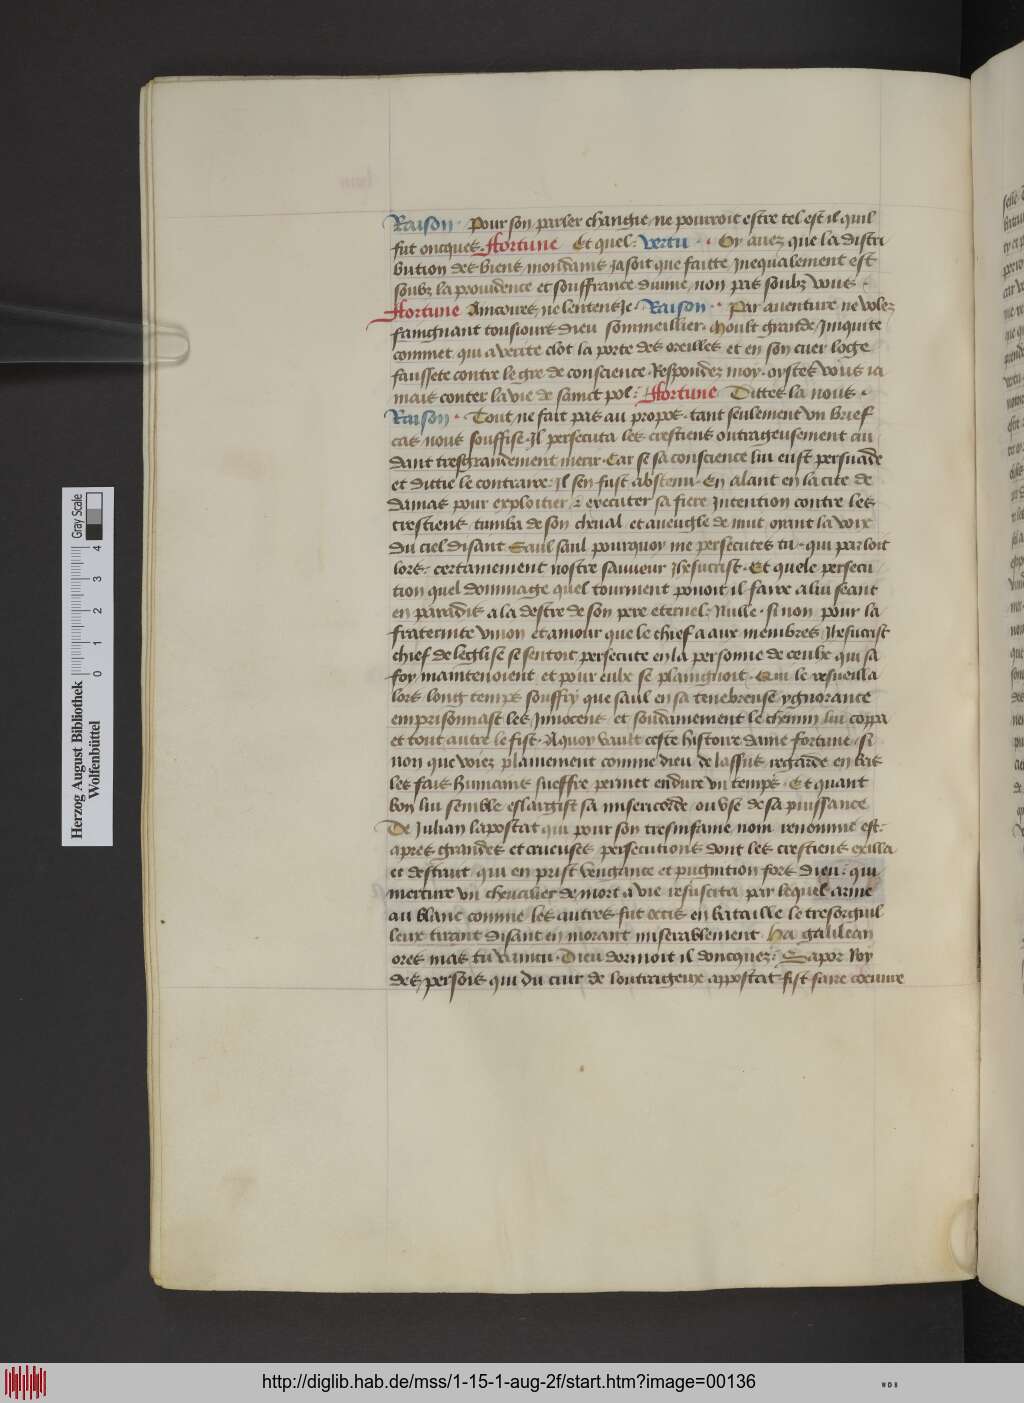 Raison · Pour son parler changie ne pourroit estre tel est il quil
fut oncques · Ffortune Et quel : vertu · · Or avez que la distri
bution des biens mondains ja soit que faitte Inequalement est
soubz la providence et souffrance divine, non pas soubz vous ·
Ffortune Aincoires ne lentens Je · Raison · · Par aventure ne volez
faingnant tousiours dieu sommeillier · Moult grande Iniquite
commet qui a verite clot la porte des oreilles et en son cuer loge
faussete contre le gre de conscience · Respondez moy · oystes vous ia
mais conter la vie de sainct pol : Ffortune Dittes la nous ·
Raison · Tout ne fait pas au propos · tant seulement un brief
cas nous souffise · Il persecuta les crestiens outrageusement cui
dant tresgrandement merir · Car se sa conscience lui eust persuade
et dittie le contraire : Il sen fust abstenu · En alant en la cite de
damas pour exploitier & executer sa fiere Intention contre les
crestiens tumba de son cheval et aveugle de nuit oyant la voix
du ciel disant Saul saul pourquoy me persecutes tu · qui parloit
lors : certainement nostre sauveur Jhesucrist · Et quele persecu
tion quel dommage quel tourment povoit il faire a lui seant
en paradis a la destre de son pere eternel : Nulle · si non pour la
fraternite union et amour que le chief a aux membres Jhesucrist
chief de leglise se sentoit persecute en la personne de ceulx qui sa
foy maintenoient et pour eulx se plaingnoit · Qui le resveilla
lors long temps souffry que saul en sa tenebreuse ygnorance
emprisonnast les Innocens et soudainement le chemin lui coppa
et tout autre le fist · A quoy vault ceste histoire dame fortune · si
non que voiez plainement comme dieu de lassus regarde en bas
les fais humains sueffre permet endure un temps · Et quant
bon lui semble eslargist sa misericorde ou use de sa puissance
De Julian lapostat qui pour son tresinfame nom renomme est :
apres grandes et crueuses persecutions dont les crestiens exilla
et destruit qui en prist vengance et pugnition fors dieu : qui
mercure un chevalier de mort a vie resuscita par lequel arme
au blanc comme les autres fut occis en bataille le tresorguil
leux tirant disant en morant miserablement Ha galilean
ores mas tu vaincu · Dieu dormoit il doncques : Sapor Roy
des persois qui du cuir de loutrageux appostat fist faire couvre
Herzog August Bibliothek
Wolfenbüttel
0 1 2 3 4
Gray Scale
http://diglib.hab.de/mss/1-15-1-aug-2f/start.htm?image=00136
WDB